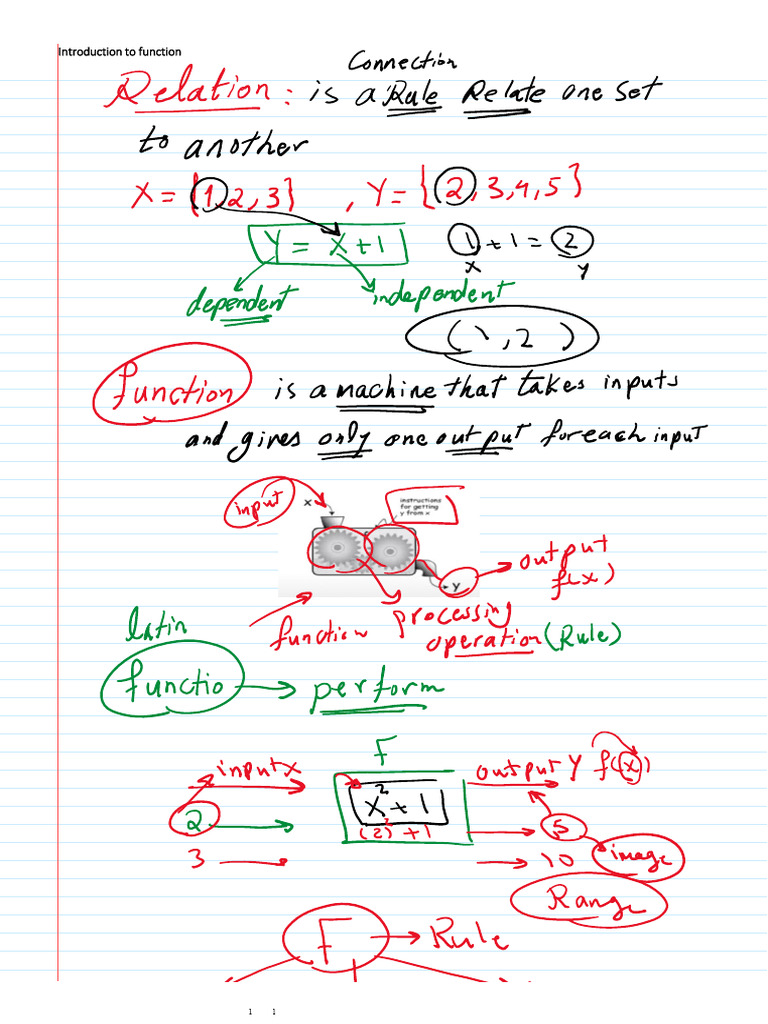 Introduction to function
Connection
Relation: is a Rule Relate one set
to another
X = {1,2,3} , Y = {2,3,4,5}
Y = X+1 1 + 1 = 2
x y
dependent independent
(1,2)
function is a machine that takes inputs
and gives only one output for each input
input x instructions
for getting
y from x
y output
f(x)
function processing
operation (Rule)
latin
functio → perform
F
input x output y f(x)
2 x²+1 5
(2)²+1
3 10 image
Range
F → Rule
1 1